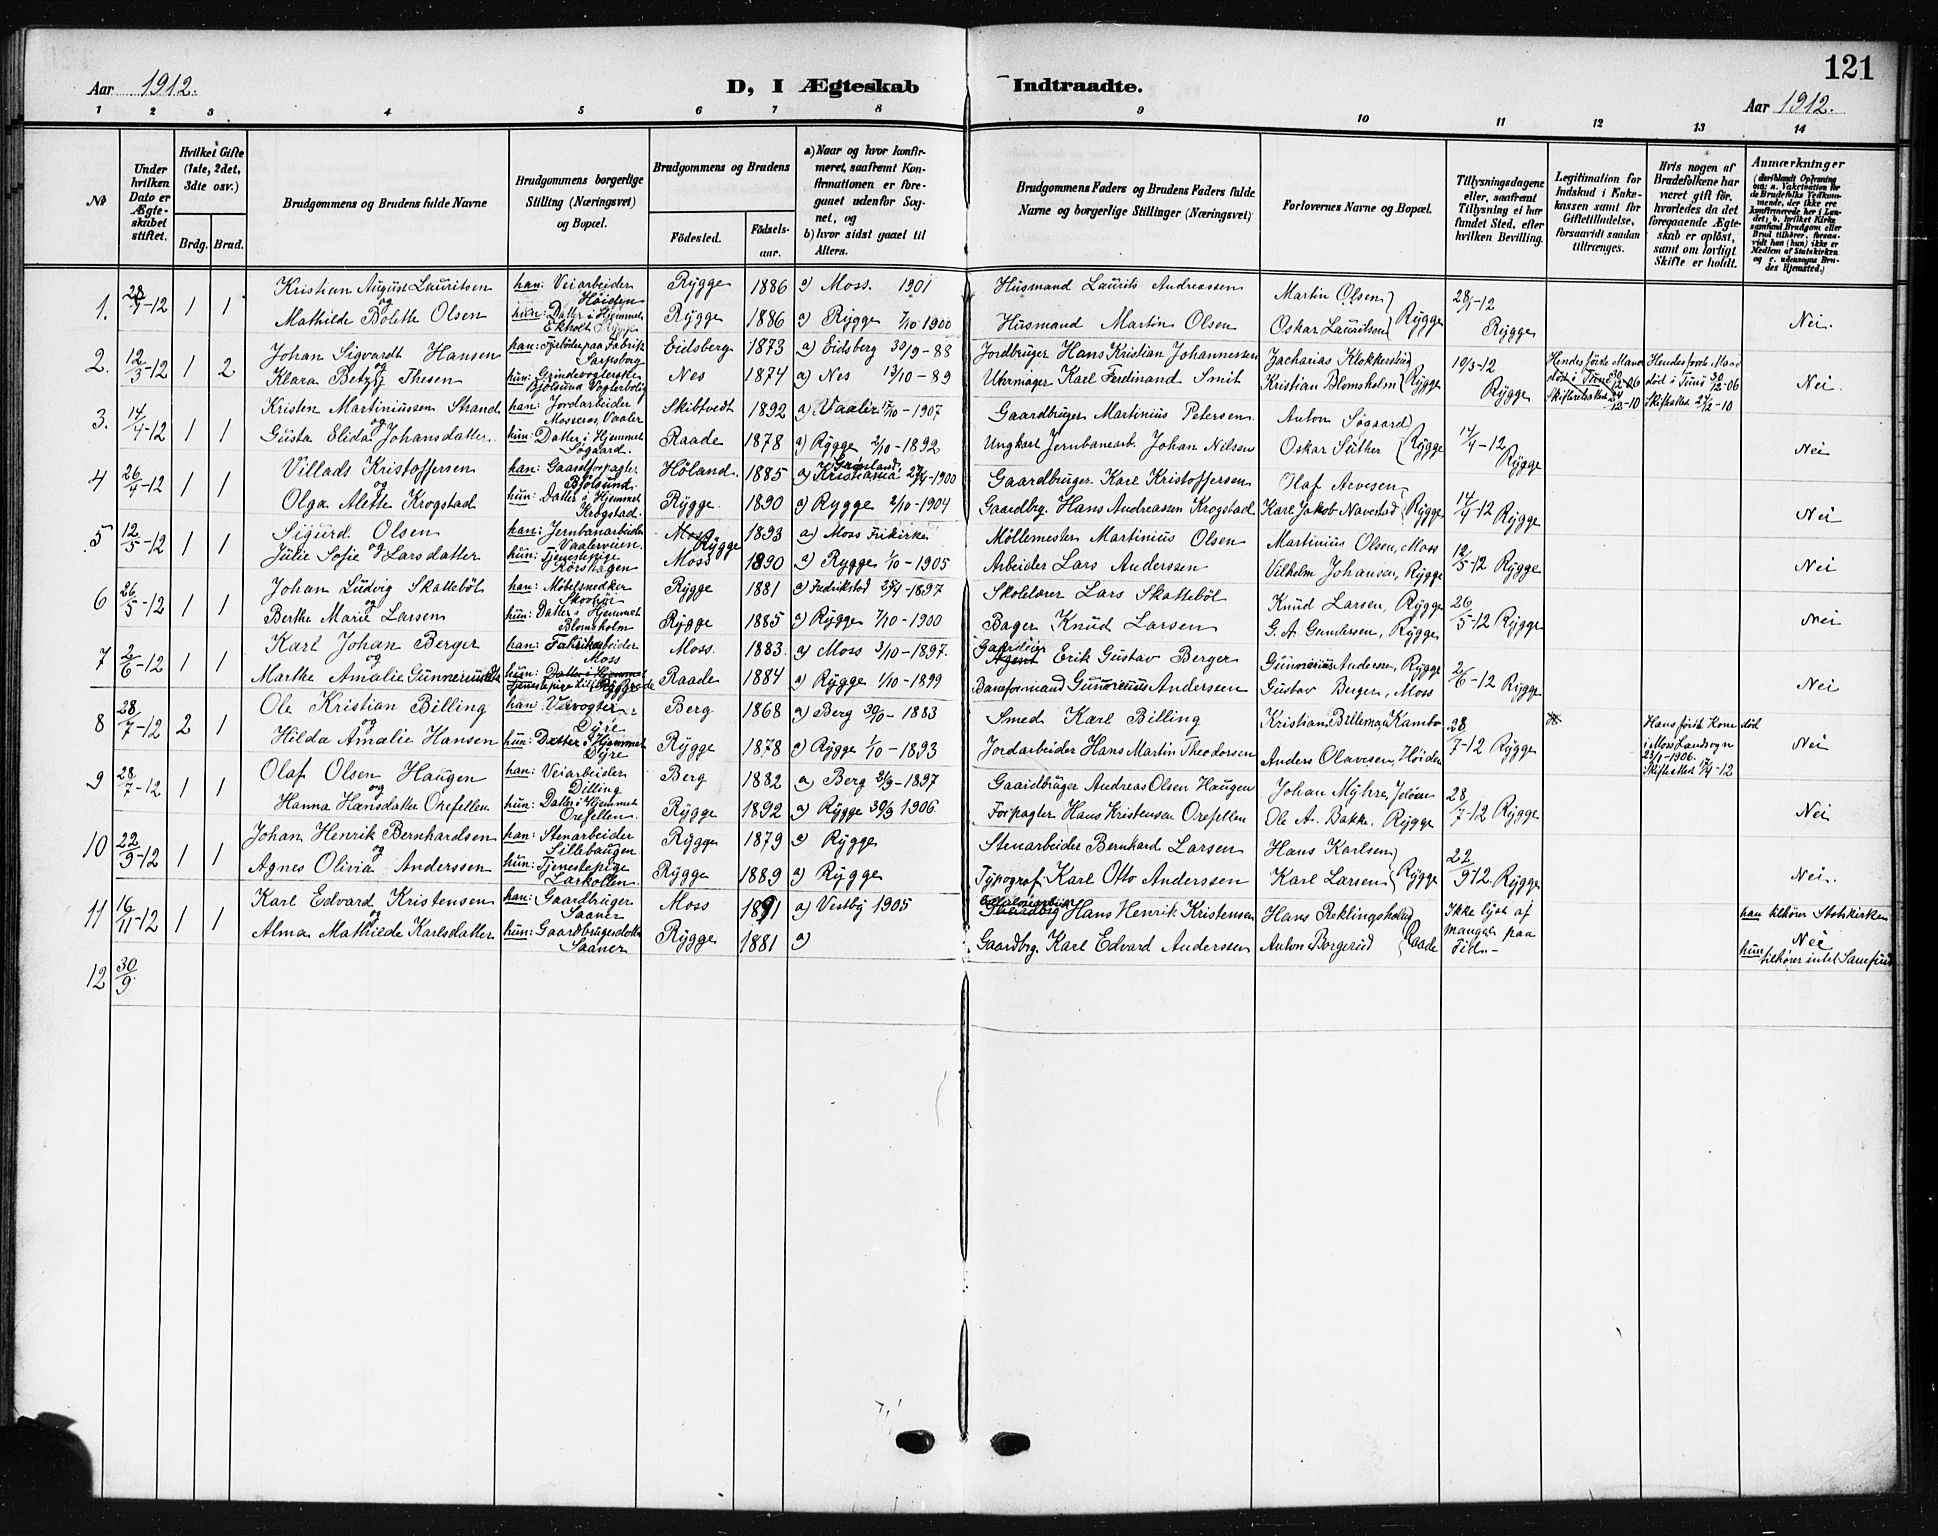 121
Aar 1912. D, I Ægteskab Indtraadte. Aar 1912.
1 2 3 4 5 6 7 8 9 10 11 12 13 14
No
Under hvilken Dato er Ægteskabet stiftet.
Hvilket Gifte (1ste, 2det, 3die osv.)
Brdg. Brud.
Brudgommens og Brudens fulde Navne
Brudgommens borgerlige Stilling (Næringsvei) og Bopæl.
Brudgommens og Brudens
Fødested. Fødselsaar.
a) Naar og hvor konfirmeret, saafremt Konfirmationen er foregaaet udenfor Sognet, og
b) hvor sidst gaaet til Alters.
Brudgommens Faders og Brudens Faders fulde Navne og borgerlige Stillinger (Næringsvei)
Forlovernes Navne og Bopæl.
Tillysningsdagene eller, saafremt Tillysning ei har fundet Sted, efter hvilken Bevilling.
Legitimation for Indskud i Enkekassen samt for Giftetilladelse, forsaavidt saadan tiltrænges.
Hvis nogen af Brudefolkene har været gift før, hvorledes da det foregaaende Ægteskab er opløst, samt om lovligt Skifte er holdt.
Anmærkninger
1. 28/1-12 1 1 Kristian August Lauritsen han: Veiarbeider Høiden Rygge 1886 a) Moss. 1901 Husmand Laurits Andreassen Martin Olsen 28/1-12
og Mathilde Bolette Olsen hun: Datter i Hjemmet Ekholt Rygge Rygge 1886 a) Rygge 7/10-1900 Husmand Martin Olsen Oskar Lauritsen Rygge Rygge Nei.
2. 12/3-12 1 2 Johan Sigvardt Hansen han: Fyrbøder paa Fabrik Sarpsborg Eidsberg 1873 a) Eidsberg 30/9-88 Jordbruger Hans Kristian Johannessen Zacharias Klokkerstud 10/3-12 Hendes første Mand død i Tune 30/12-06 Hendes første Mand død i Tune 30/12-06
og Klara Betzy Thesen hun: Nes 1874 a) Nes 13/10-89 Uhrmager Karl Ferdinand Smit Kristian Blomsholm Rygge Rygge Nei.
3. 14/4-12 1 1 Kristen Martiniussen Strand han: Jordarbeider Mosseros, Vaaler Skibtvedt 1892 a) Vaaler 17/10-1907 Gaardbruger Martinius Petersen Anton Søgaard
og Gusta Elida Johansdatter hun: Datter i Hjemmet Søgaard. Raade 1878 a) Rygge 2/10-1892 Ungkarl Jernbanearb. Johan Nilsen Oskar Suther Rygge 14/4-12 Rygge Nei
4 26/4-12 1 1 Villads Kristoffersen han: Gaardforpagter Bjølsund. Høland. 1885 a) Grønland Kristiania Gaardbruger Karl Kristoffersen Olaf Arvesen
og Olga Alette Krogstad hun: Datter i Hjemmet Krogstad. Rygge 1890 a) Rygge 2/10-1904 Gaardbrg. Hans Andreassen Krogstad Karl Jakob Navestad Rygge 14/4-12 Rygge Nei
5 12/5-12 1 1 Sigurd Olsen han: Jernbanarbeider Vaalerveien Rygge 1893 a) Moss Frikirke Möllemester Martinius Olsen Martinius Olsen, Moss
og Julie Sofie Larsdatter hun: Tjenestepige Moss 1890 a) Rygge 1/10-1905 Arbeider Lars Anderssen Vilhelm Johansen, Rygge 12/5-12 Rygge Nei
6 26/5-12 1 1 Johan Ludvig Skattebøl han: Möbelsnedker Rygge 1881 a) Fredrikstad 25/4-1897 Skolelærer Lars Skattebøl Knud Larsen, Rygge
og Berthe Marie Larsen hun: Datter i Hjemmet Blomsholm Rygge 1885 a) Rygge 7/10-1900 Bager Knud Larsen G. A. Gundersen, Rygge 26/5-12 Rygge Nei
7 2/6-12 1 1 Karl Johan Berger han: Fabrikarbeider Moss Moss. 1883. a) Moss 3/10-1897. Gaardeier Agent Erik Gustav Berger Gunnerius Andersen, Rygge
og Marthe Amalie Gunneriusdtr. hun: Datter i Hjemmet Raade 1884 a) Rygge 1/10-1899 Baneformand Gunnerius Anderssen Gustav Berger, Moss 2/6-12 Rygge Nei
8 28/7-12 2 1 Ole Kristian Billing han: Veivogter Dyre Berg 1868 a) Berg 30/10-1883 Smed Karl Billing Hans første Kone død i Moss Landsogn 1906.
og Hilda Amalie Hansen hun: Datter i Hjemmet Dyre Rygge 1878 a) Rygge 1/10-1893 Jordarbeider Hans Martin Theodorsen Anders Olavesen, Høiden 28/7-12 Rygge Nei
9 28/7-12 1 1 Olaf Olsen Haugen han: Veiarbeider Dilling Berg 1882 a) Berg 1897 Gaardbruger Andreas Olsen Haugen Johan Myhre, Jeløen
og Hanna Hansdatter Orefellen hun: Datter i Hjemmet Orefellen. Rygge 1892 a) Rygge 30/9 1906. Forpagter Hans Kristensen Orefellen Ole A. Bakke, Rygge 28/7-12 Rygge Nei
10 22/9-12 1 1 Johan Henrik Bernhardsen han: Stenarbeider Sillebaugen Rygge 1879 a) Rygge Stenarbeider Bernhard Larsen Hans Karlsen
og Agnes Olivia Anderssen hun: Tjenestepige Larkollen. Rygge 1889 a) Rygge Typograf Karl Otto Anderssen Karl Larsen Rygge 22/9 12. Rygge Nei.
11 16/11-12 1 1 Karl Edvard Kristensen han: Gaardbruger Saaner Moss 1891 a) Vestby 1905 Hans Henrik Kristensen Ikke lyst af mangel paa Tid.- han tilhører Statskirken
og Alma Mathilde Karlsdatter hun: Gaardbrugerdatter Saaner Rygge 1881 a) Gaardbrg. Karl Edvard Anderssen Anton Borgerud Raade Nei hun tilhører intet Samfund
12 30/9